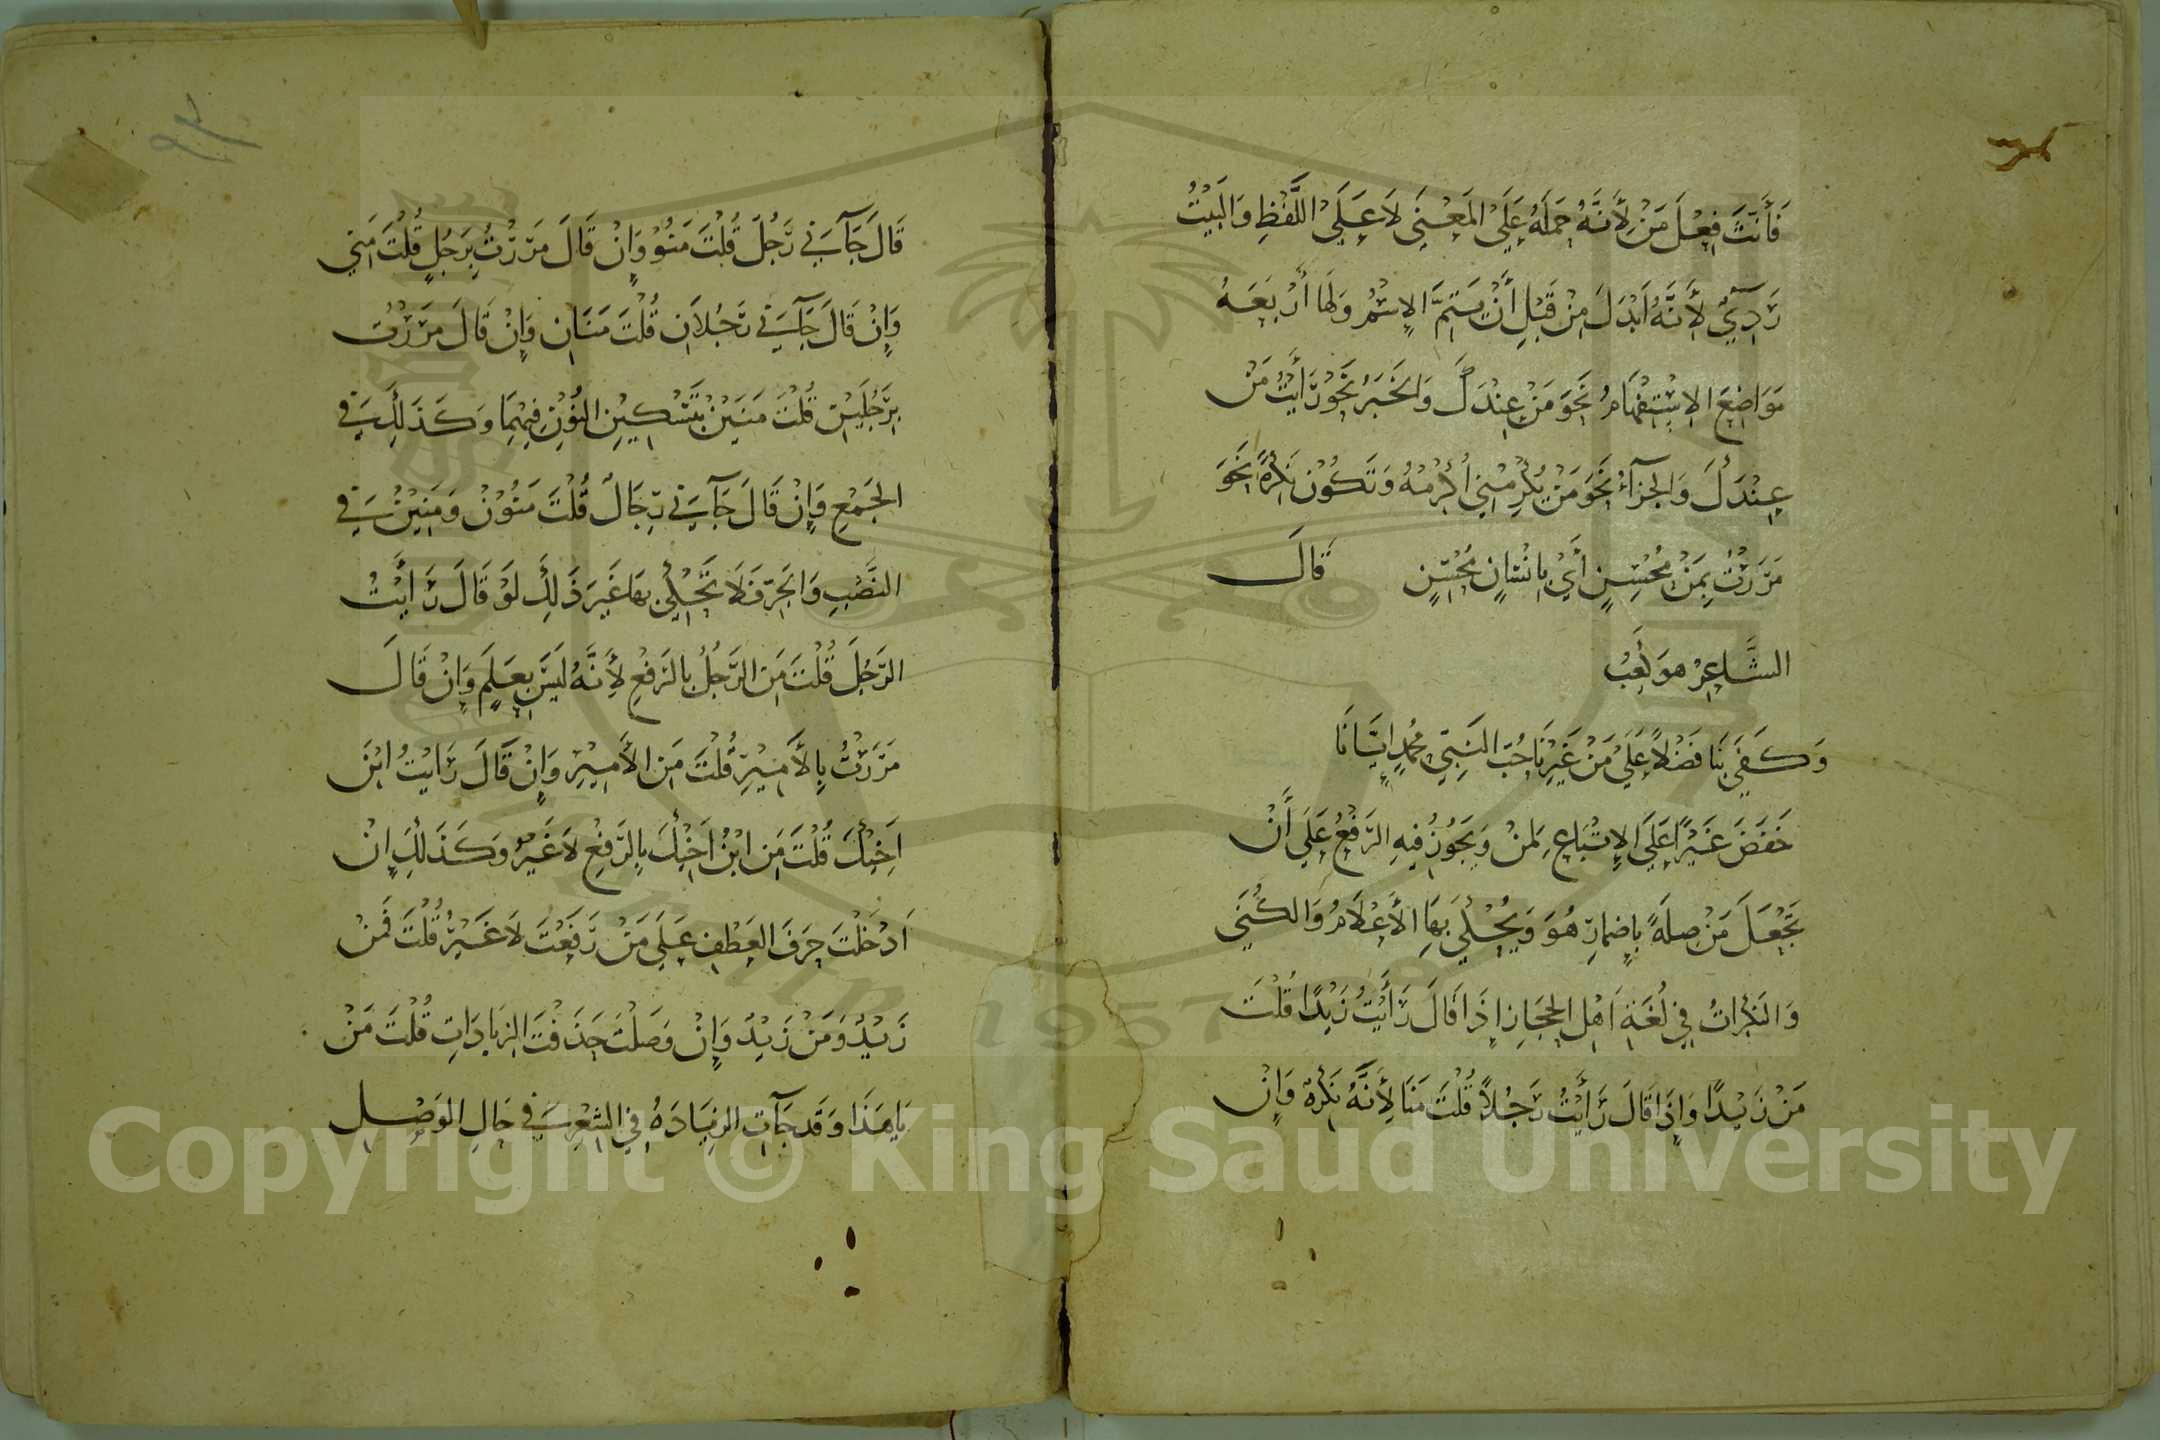 فَأَنَّثَ فِعْلَ مَنْ لِأَنَّهُ حَمَلَهُ عَلَى المَعْنَى لَا عَلَى اللَّفْظِ وَالبَيْتُ
رَدِيٌّ لِأَنَّهُ أَبْدَلَ مِنْ قَبْلِ أَنْ يَتِمَّ الإِسْمُ وَلَهَا أَرْبَعَةُ
مَوَاضِعَ الإِسْتِفْهَامُ نَحْوَ مَنْ عِنْدَكَ وَالخَبَرُ نَحْوُ رَأَيْتُ مَنْ
عِنْدَكَ وَالجَزَآءُ نَحْوَ مَنْ يُكْرِمْنِي أُكْرِمْهُ وَتَكُوْنُ نَكِرَةً نَحْوَ
مَرَرْتُ بِمَنْ مُحْسِنٍ أَيْ بِإِنْسَانٍ مُحْسِنٍ قَالَ
الشَّاعِرُ هو كَعْبُ
وَكَفَى بِنَا فَضْلًا عَلَى مَنْ غَيْرِنَا حُبُّ النَّبِيِّ مُحَمَّدٍ إِيَّانَا
خَفَضَ غَيْرًا عَلَى الإِتْبَاعِ لِمَنْ وَيَجُوْزُ فِيْهِ الرَّفْعُ عَلَى أَنْ
تَجْعَلَ مَنْ صِلَةً بِإِضْمَارِ هُوَ وَيُحْكَى بِهَا الأَعْلَامُ وَالكُنَى
وَالنَّكِرَاتُ فِي لُغَةِ أَهْلِ الحِجَازِ إِذَا قَالَ رَأَيْتُ زَيْدًا قُلْتَ
مَنْ زَيْدًا وَإِذَا قَالَ رَأَيْتُ رَجُلًا قُلْتَ مَنَا لِأَنَّهُ نَكِرَةٌ وَإِنْ
قَالَ جَآءَنِي رَجُلٌ قُلْتَ مَنُوْ وَإِنْ قَالَ مَرَرْتُ بِرَجُلٍ قُلْتَ مَنِي
وَإِنْ قَالَ جَآءَنِي رَجُلَانِ قُلْتَ مَنَانِ وَإِنْ قَالَ مَرَرْتُ
بِرَجُلَيْنِ قُلْتَ مَنَيْنْ بِتَسْكِيْنِ النُّوْنِ فِيْهِمَا وَكَذَلِكَ فِي
الجَمْعِ وَإِنْ قَالَ جَآءَنِي رِجَالٌ قُلْتَ مَنُوْنْ وَمَنِيْنْ فِي
النَّصْبِ وَالجَرِّ فَلَا تَحْكِي بِهَا غَيْرَ ذَلِكَ لَوْ قَالَ رَأَيْتُ
الرَّجُلَ قُلْتَ مَنِ الرَّجُلُ بِالرَّفْعِ لِأَنَّهُ لَيْسَ بِعَلَمٍ وَإِنْ قَالَ
مَرَرْتُ بِالأَمِيْرِ قُلْتَ مَنِ الأَمِيْرُ وَإِنْ قَالَ رَأَيْتُ ابْنَ
أَخِيْكَ قُلْتَ مَنِ ابْنُ أَخِيْكَ بِالرَّفْعِ لَا غَيْرُ وَكَذَلِكَ إِنْ
أَدْخَلْتَ حَرْفَ العَطْفِ عَلَى مَنْ رَفَعْتَ لَا غَيْرُ قُلْتَ فَمَنْ
زَيْدٌ وَمَنْ زَيْدٌ وَإِنْ وَصَلْتَ حَذَفْتَ الزِّيَادَاتِ قُلْتَ مَنْ
يَا هَذَا وَقَدْ جَآءَتِ الزِّيَادَةُ فِي الشِّعْرِ فِي حَالِ الوَصْلِ
1957
Copyright © King Saud University